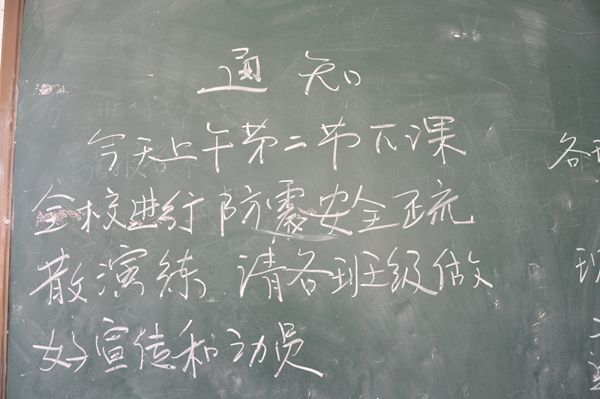 通知
今天上午第二节下课
全校进行防震安全疏
散演练，请各班级做
好宣传和动员
各班
班